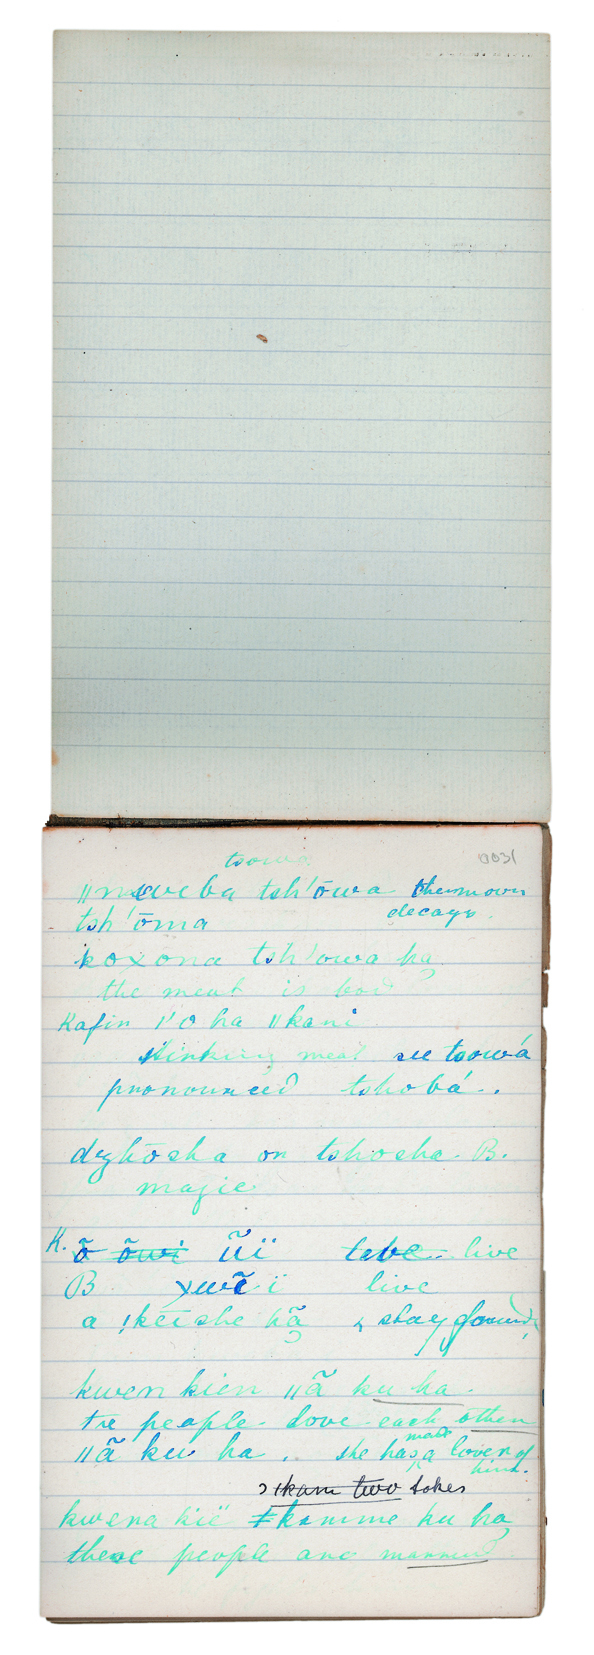 tsowa
0031
ǁnweve ba tsh'ōwa the moon
tsh'ōma decays.
koxona tsh'owa ha
the meat is bad
Kafin ǀ'o ha ǁkani
stinking meat see tsowá
pronounced tshobá.
dzhōsha or tshosha. B.
magic
K. ȭ õwi ũï tebe live
B xwẽ ï live
a !keishe hã stay ground
kwen kien ǁã ku ha.
the people love each other
ǁã ku ha .. she has made a lover of
him.
ǀkam two takes
kwena kïë ǂkamme ku ha
these people are married